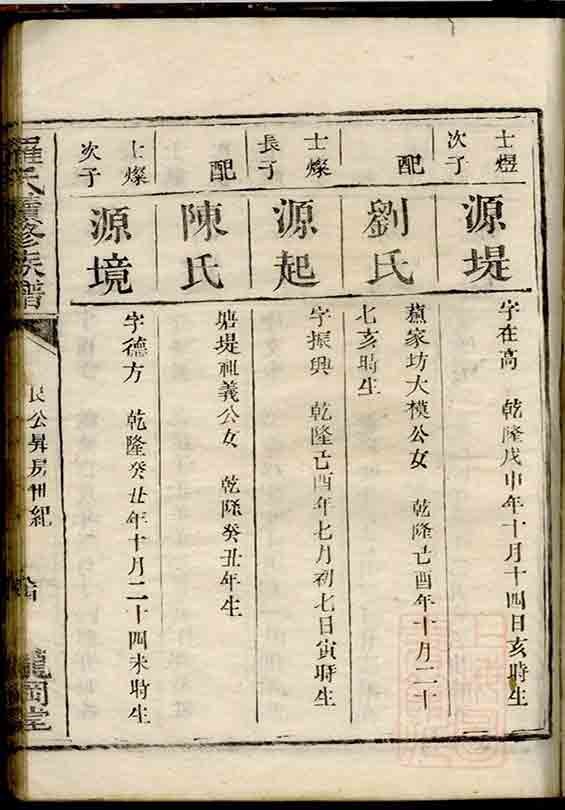 士煜次子
源堤
字在高　乾隆戊申年十月十四日亥時生
配
劉氏
蘆家坊大模公女　乾隆己酉年十月二十
七亥時生
士燦長子
源起
字振興　乾隆己酉年七月初七日寅時生
配
陳氏
塘堤祖義公女　乾隆癸丑年生
士燦次子
源境
字德方　乾隆癸丑年十月二十四未時生
羅氏續修族譜
民公昇房世紀